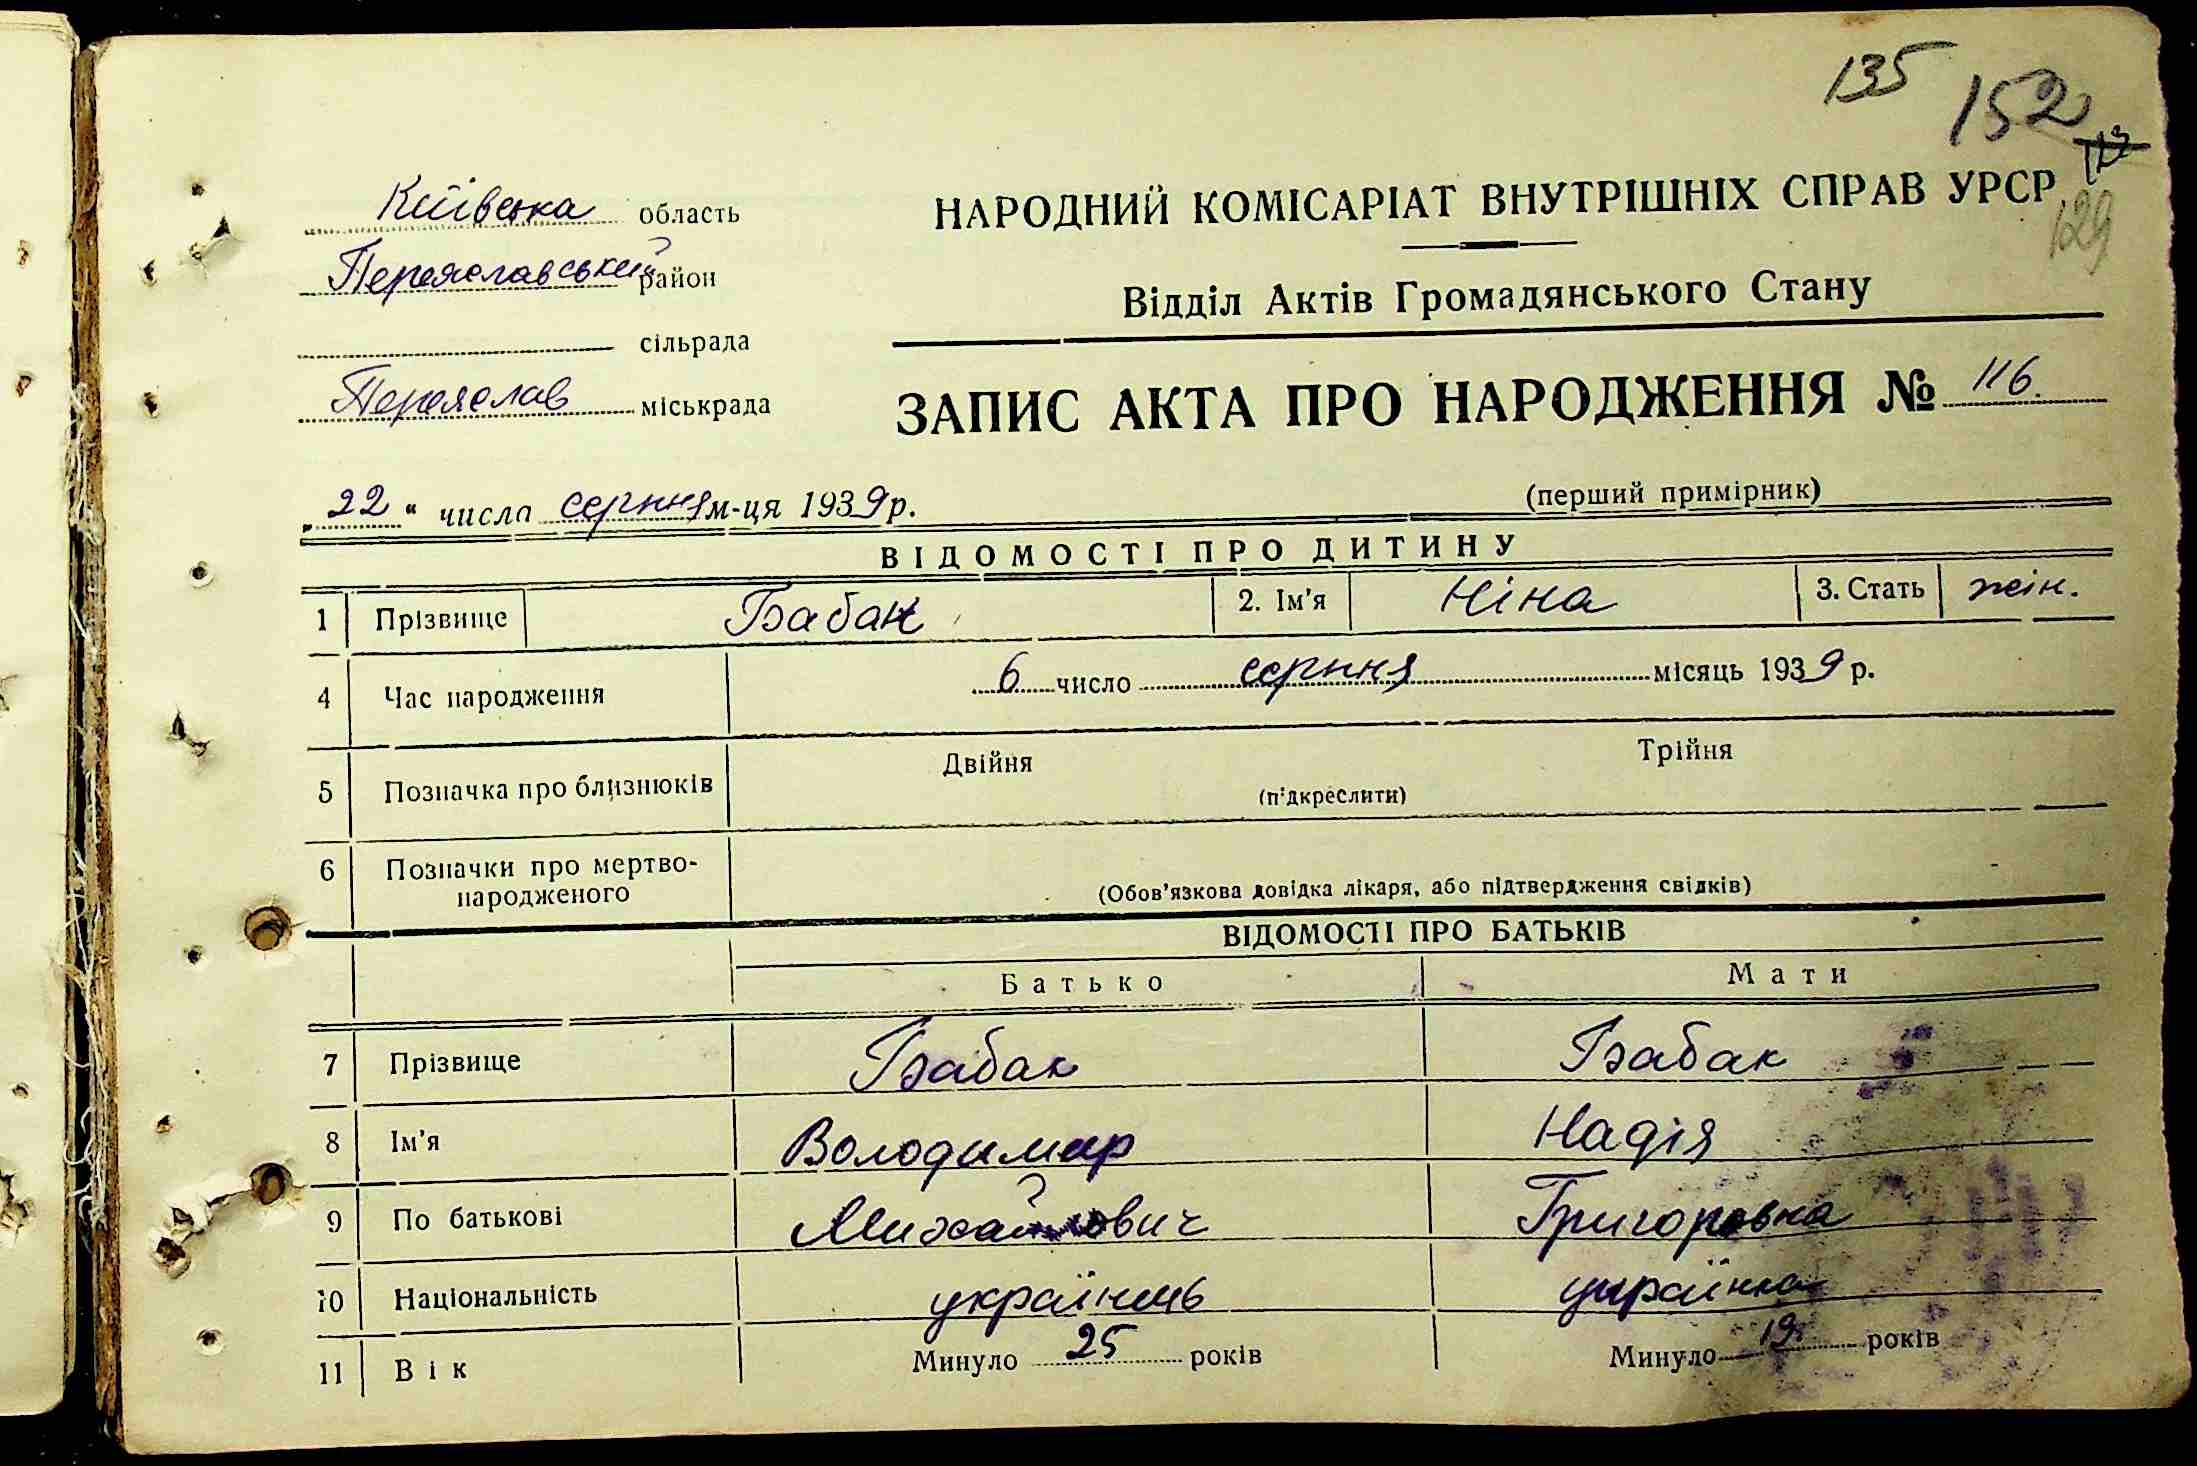 135 152
129
Київська область
Переяславський район
сільрада
Переяслав міськрада
НАРОДНИЙ КОМІСАРІАТ ВНУТРІШНІХ СПРАВ УРСР
Відділ Актів Громадянського Стану
ЗАПИС АКТА ПРО НАРОДЖЕННЯ № 116.
(перший примірник)
„22“ числа серпня м-ця 1939 р.
ВІДОМОСТІ ПРО ДИТИНУ
1 Прізвище Бабак 2. Ім'я Ніна 3. Стать жін.
4 Час народження 6 число серпня місяць 1939 р.
5 Позначка про близнюків Двійня Трійня
(підкреслити)
6 Позначки про мертво-
народженого (Обов'язкова довідка лікаря, або підтвердження свідків)
ВІДОМОСТІ ПРО БАТЬКІВ
Батько Мати
7 Прізвище Бабак Бабак
8 Ім'я Володимир Надія
9 По батькові Михайлович Григоровна
10 Національність українець українка
11 Вік Минуло 25 років Минуло 19 років